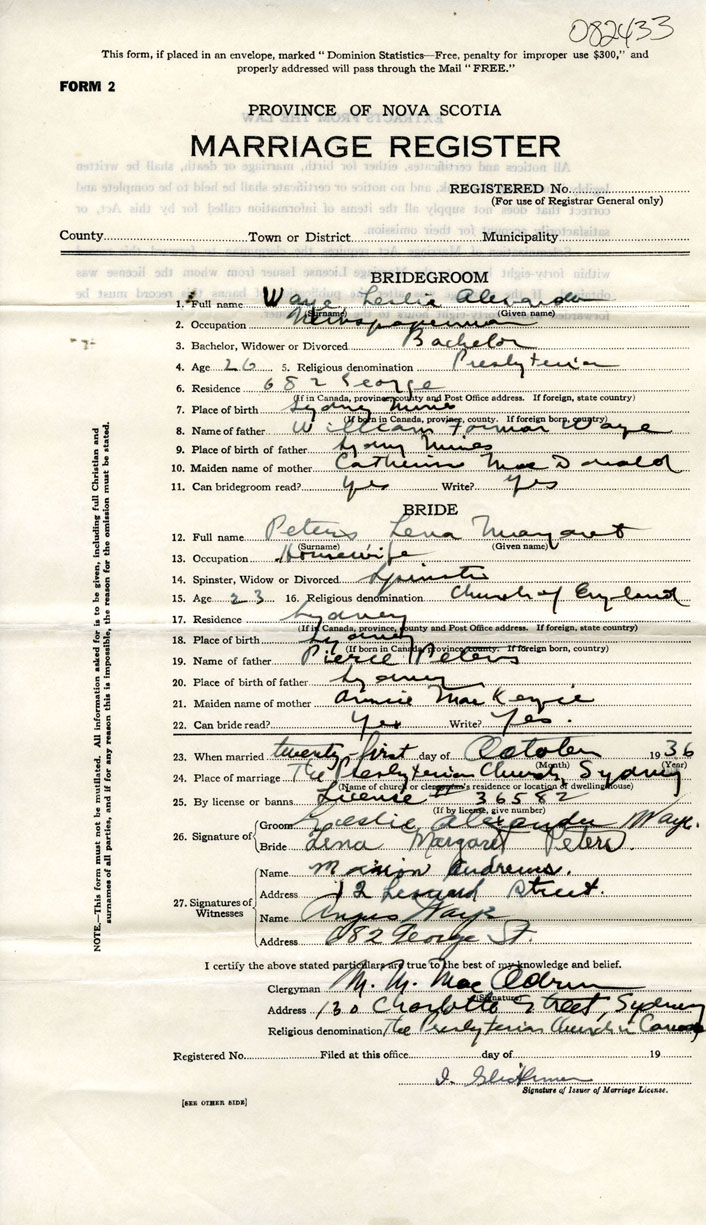 082433
This form, if placed in an envelope, marked "Dominion Statistics—Free, penalty for improper use $300," and
properly addressed will pass through the Mail "FREE."
FORM 2
PROVINCE OF NOVA SCOTIA
MARRIAGE REGISTER
REGISTERED No.
(For use of Registrar General only)
County Town or District Municipality
BRIDEGROOM
1. Full name Waye Leslie Alexander
(Surname) (Given name)
2. Occupation Newspaperman
3. Bachelor, Widower or Divorced Bachelor
4. Age 26 5. Religious denomination Presbyterian
6. Residence 682 George
(If in Canada, province, county and Post Office address. If foreign, state country)
7. Place of birth Sydney Mines
(If born in Canada, province, county. If foreign born, country)
8. Name of father William Waye
9. Place of birth of father Sydney Mines
10. Maiden name of mother Catherine MacDonald
11. Can bridegroom read? Yes Write? Yes
BRIDE
12. Full name Peters Lena Margaret
(Surname) (Given name)
13. Occupation Housewife
14. Spinster, Widow or Divorced Spinster
15. Age 23 16. Religious denomination Church of England
17. Residence Sydney
(If in Canada, province, county and Post Office address. If foreign, state country)
18. Place of birth Sydney
(If born in Canada, province, county. If foreign born, country)
19. Name of father Pierce Peters
20. Place of birth of father Sydney
21. Maiden name of mother Annie MacKenzie
22. Can bride read? Yes Write? Yes.
23. When married twenty-first day of October 1936
(Month) (Year)
24. Place of marriage The Presbyterian Church, Sydney
(Name of church or clergyman's residence or location of dwelling house)
25. By license or banns License # 36582
(If by license, give number)
26. Signature of Groom Leslie Alexander Waye.
Bride Lena Margaret Peters.
27. Signatures of Witnesses
Name Marion Andrews.
Address 12 Street.
Name Angus Waye
Address 682 George St.
I certify the above stated particulars are true to the best of my knowledge and belief.
Clergyman M. M. Mac
(Signature)
Address 130 Charlotte Street, Sydney
Religious denomination The Presbyterian Church in Canada
Registered No. Filed at this office day of 19
I.
Signature of Issuer of Marriage License.
[SEE OTHER SIDE]
NOTE.—This form must not be mutilated. All information asked for is to be given, including full Christian and
surnames of all parties, and if for any reason this is impossible, the reason for the omission must be stated.